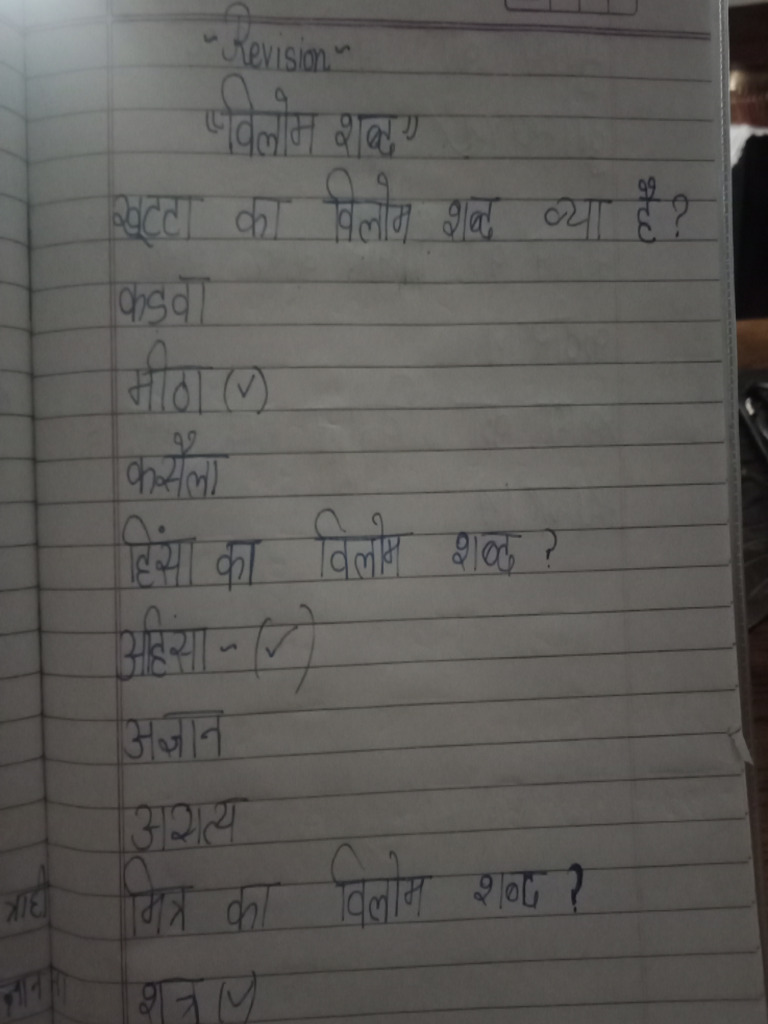 ~Revision~
"विलोम शब्द"
खट्टा का विलोम शब्द क्या है?
कड़वा
मीठा (✓)
कसैला
हिंसा का विलोम शब्द ?
अहिंसा - (✓)
अज्ञान
असत्य
मित्र का विलोम शब्द ?
शत्रु (✓)